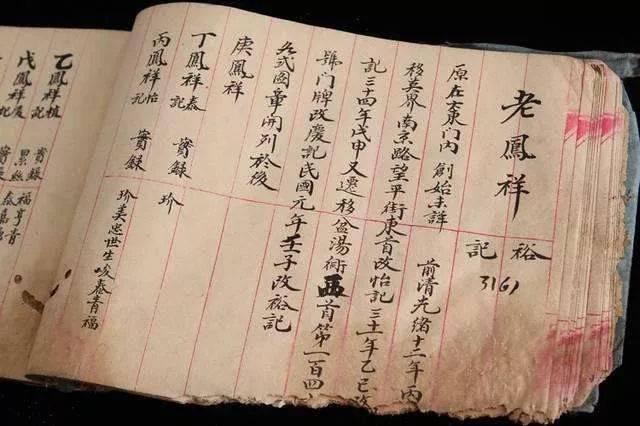 老鳳祥 裕記 3161
原在大東門內 創始未詳 前清光緒十二年丙
移英界南京路望平街東首改怡記三十一年乙巳改
記三十四年戊申又遷移盆湯衖西首第一百四
號門牌改慶記民國元年壬子改裕記
各式圖章開列於後
庚鳳祥
丁鳳祥泰記 寳録 珍
丙鳳祥怡記 寳録 珍美忠世生峻泰青福
乙鳳祥植記 寳録 福亨青
戊鳳祥 記